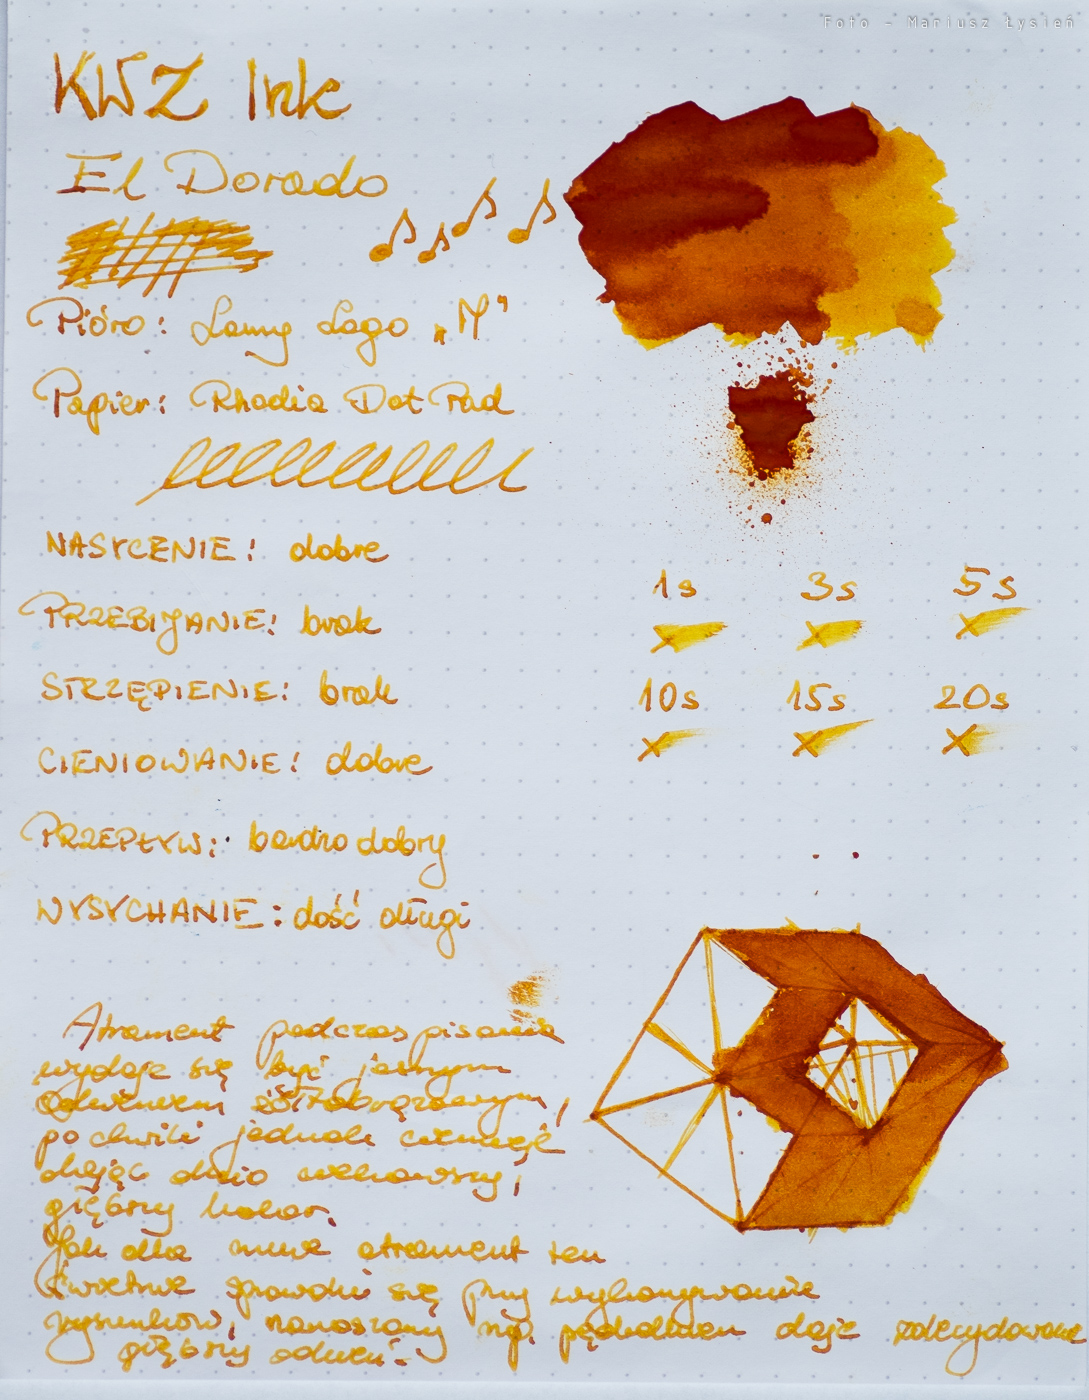 Foto - Mariusz Łysień
KWZ Ink
El Dorado
Pióro: Lamy Logo „M"
Papier: Rhodia Dot Pad
NASYCENIE: dobre
1s 3s 5s
PRZEBIJANIE: brak
STRZĘPIENIE: brak
10s 15s 20s
CIENIOWANIE: dobre
PRZEPŁYW: bardzo dobry
WYSYCHANIE: dość długi
Atrament podczas pisania
wydaje się być jasnym
odcieniem żółtobrązowym,
po chwili jednak ciemnieje
dając dużo ciekawszy,
głębszy kolor.
Jak dla mnie atrament ten
świetnie sprawdzi się przy wykonywaniu
rysunków, nanoszony np. pędzelkiem daje zdecydowanie
głębszy odcień.